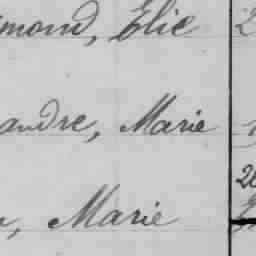 mond, Elie 2
andre, Marie
, Marie 20